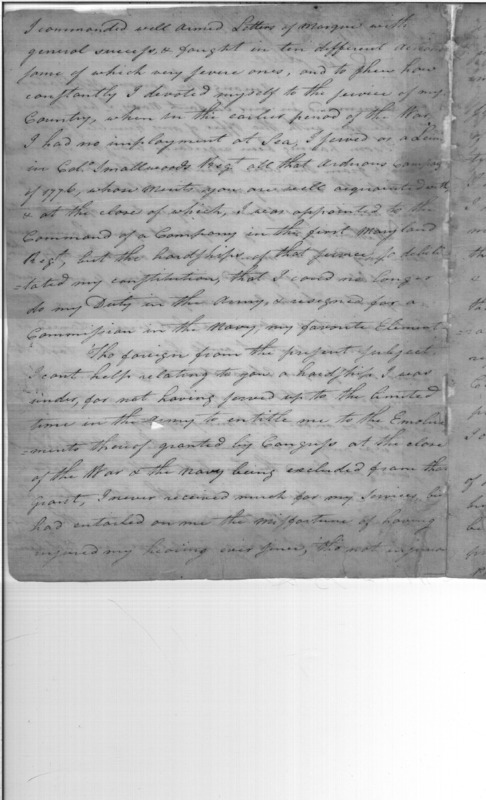 I commanded well armed Letters of Marque with
general success, & fought in ten different Actions
some of which very severe ones, and to shew how
constantly I devoted myself to the service of my
Country, when in the earliest period of the War,
I had no imployment at Sea, I served as a Lieut
in Col.º Smallwoods Reg.t all that Arduous Campa
of 1776, whose Merits you are well acquainted with
& at the close of which, I was appointed to the
Command of a Company in the first Maryland
Reg.t, but the hardships of that service so debili
=tated my constitution, that I could no longer
do my Duty in the Army, & resigned for a
Commission in the Navy, my favorite Element.
Tho foreign from the present subject
I cant help relating to you a hardship I was
under, for not having served up to the limited
time in the Army to entitle me to the Emolu
=ments thereof granted by Congress at the close
of the War & the Navy being excluded from that
grant, I never received much for my Services, but
had entailed on me the misfortune of having
injured my hearing ever since, tho not